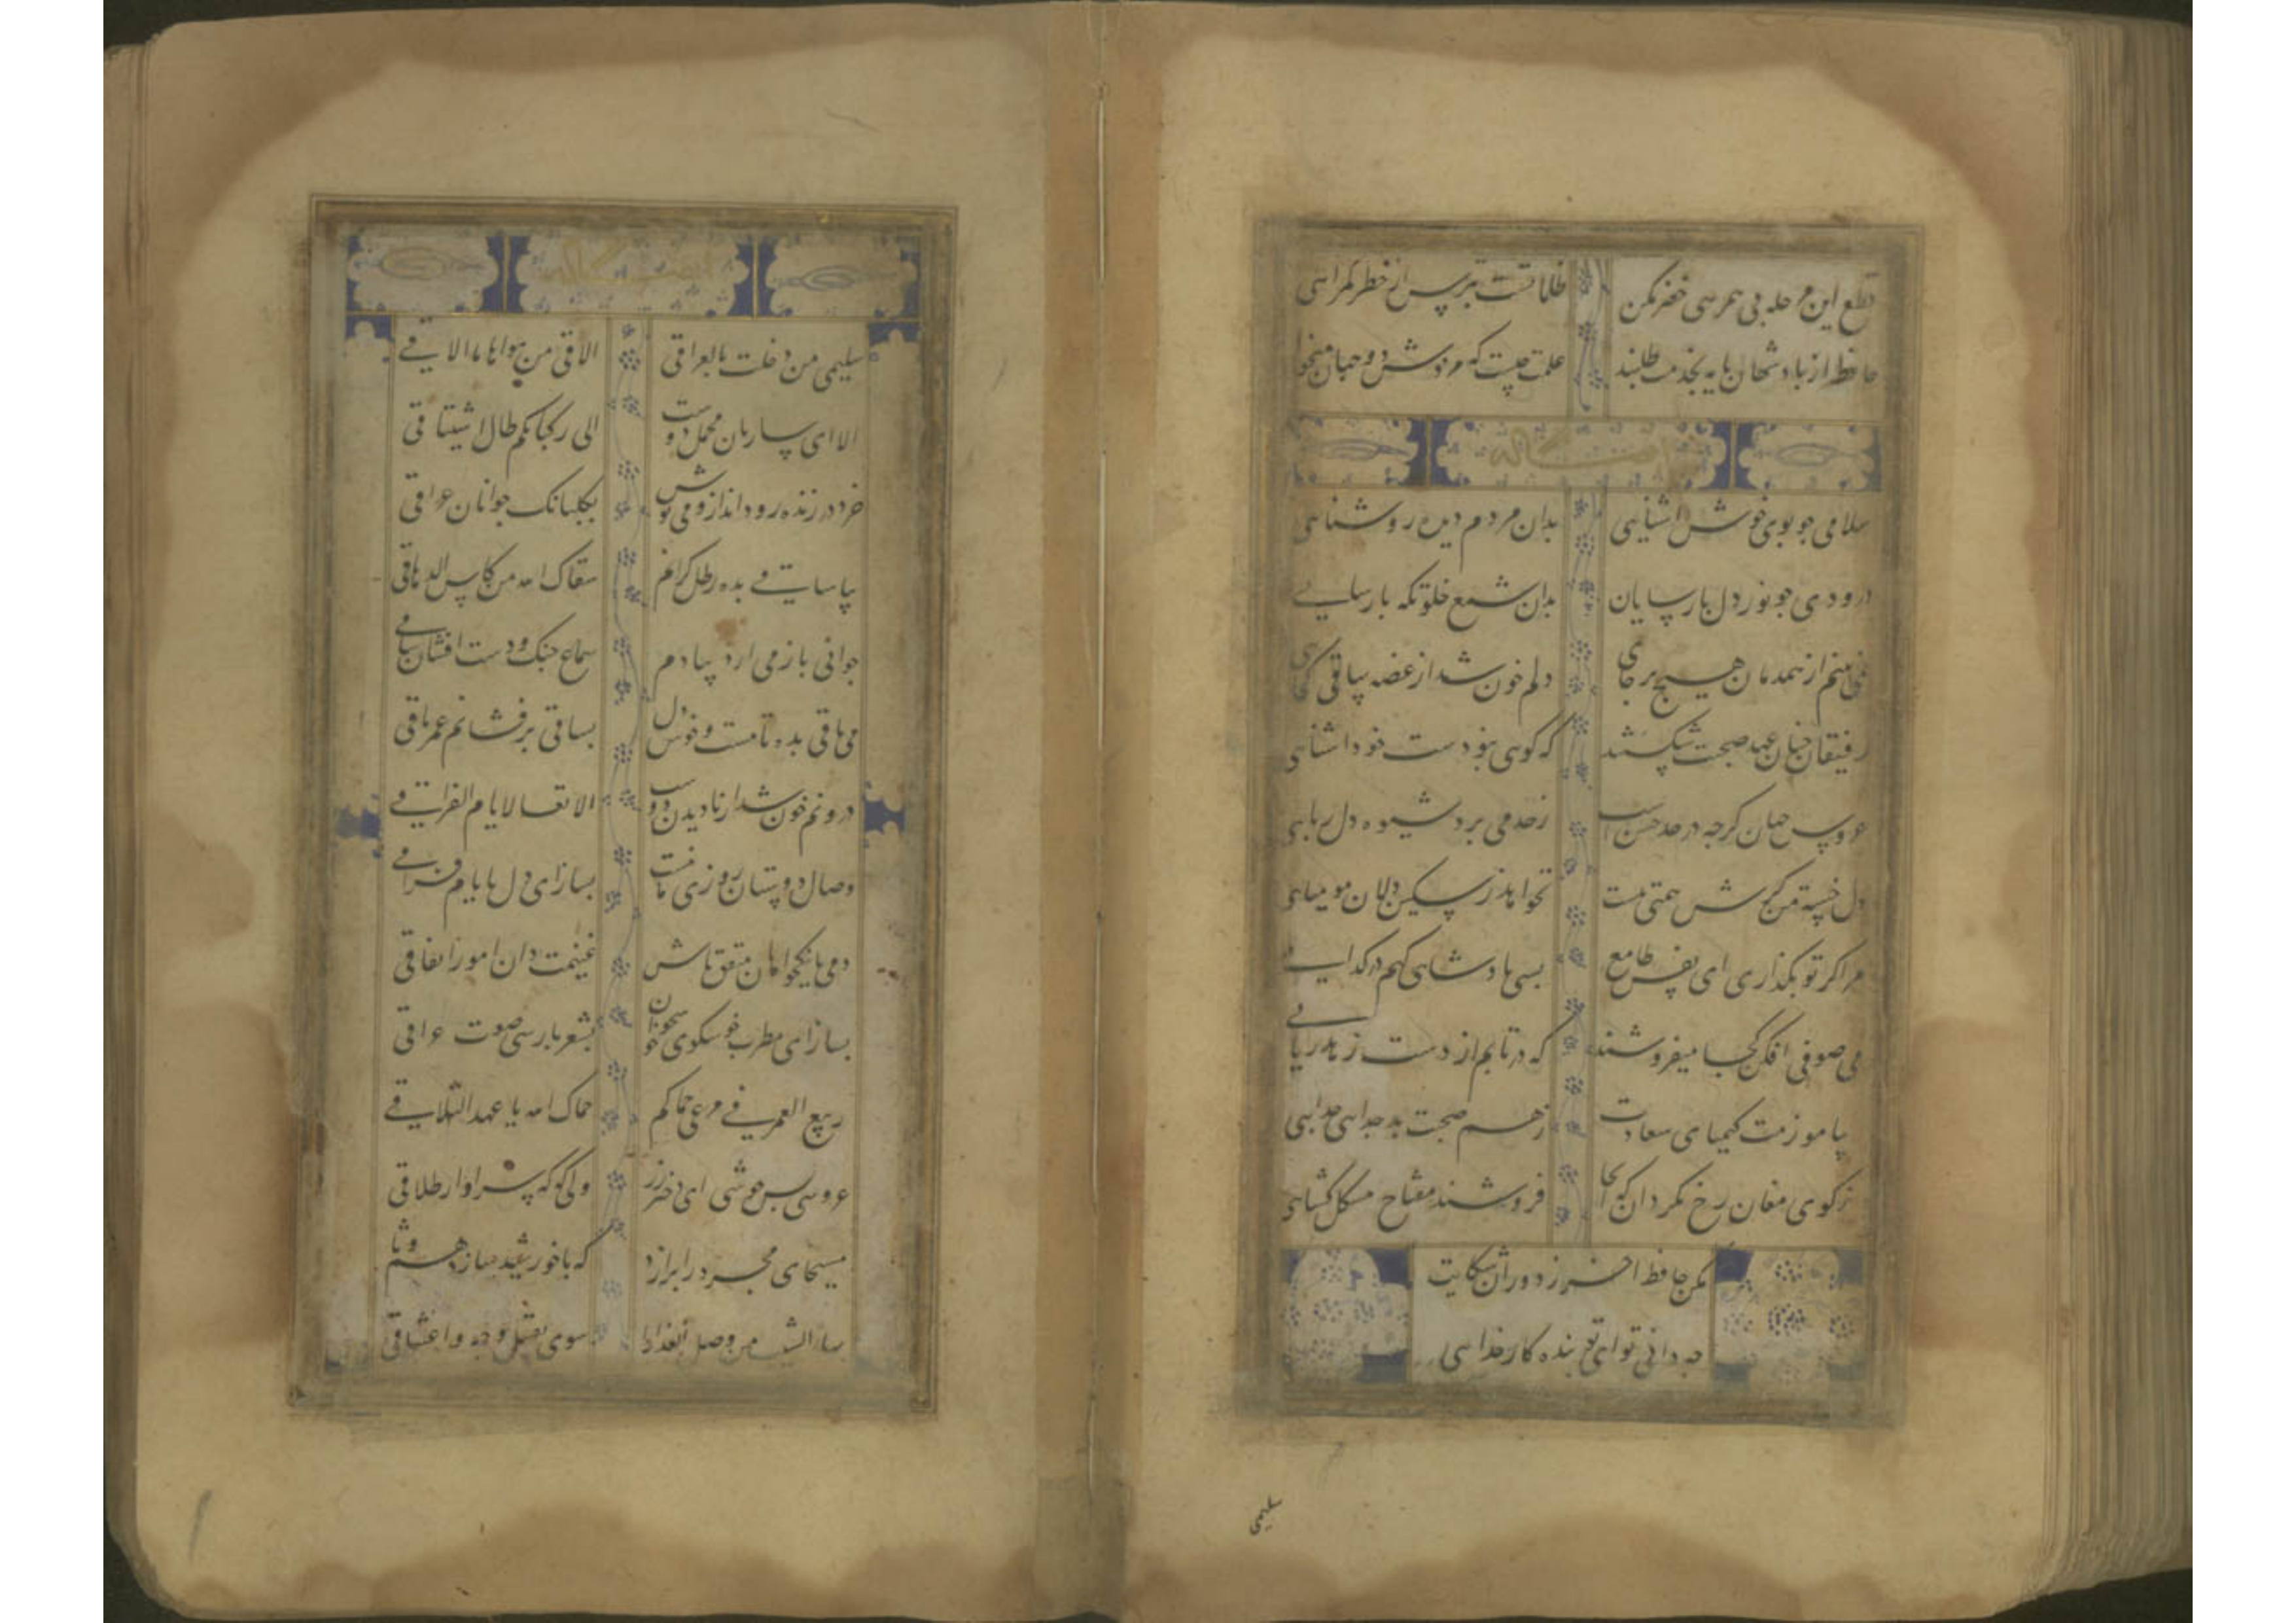 قطع این مرحله بی همرهی خضر مکن
ظلماتست بترس از خطر گمراهی
حافظ از پادشهان پایه بخدمت طلبند
سلامی چو بوی خوش آشنایی
بدان مردم دیده روشنایی
درودی چو نور دل پارسایان
بدان شمع خلوتگه پارسایی
نمی بینم از همدمان هیچ بر جای
دلم خون شد از غصه ساقی کجایی
رفیقان چنان عهد صحبت شکستند
که گویی نبودست خود آشنایی
عروس جهان گرچه در حد حسن است
زحد می برد شیوه دل ربایی
دل خسته من گرش همتی هست
نخواهد ز سنگین دلان مومیایی
مرا گر تو بگذاری ای نفس طامع
بسی پادشاهی کنم در گدایی
می صوفی افکن کجا میفروشند
که در تابم از دست زهد ریایی
بیاموزمت کیمیای سعادت
ز هم صحبت بد جدایی جدایی
ز کوی مغان رخ مگردان که آنجا
فروشند مفتاح مشکل گشایی
مکن حافظ از جور دوران شکایت
چه دانی تو ای بنده کار خدایی
سلیمی
سلیمی من دخلت بالعراقی
الاقی من هواها ما الاقی
الا ای ساربان محمل دوست
الی رکبانکم طال اشتیاقی
خرد در زنده رود انداز و می نوش
بگلبانگ جوانان عراقی
بیا ساقی بده رطل گرانم
سقاک الله من کاس الدهاقی
جوانی باز می آرد بیادم
سماع چنگ و دست افشان ساقی
می باقی بده تا مست و خوش دل
بساقی برفشانم عمر باقی
درونم خون شد از نادیدن دوست
الا تعسا لایام الفراقی
وصال دوستان روزی ما نیست
بساز ای دل بایام فراقی
دمی با نیکخواهان متفق باش
غنیمت دان امور اتفاقی
بساز ای مطرب خوشخوان خوشگوی
بشعر پارسی صوت عراقی
ربیع العمر فی مرعی حماکم
حماک الله یا عهد التلاقی
عروسی بس خوشی ای دختر رز
ولی گه گه سزاوار طلاقی
مسیحای مجرد را برازد
که با خورشید سازد هم وثاقی